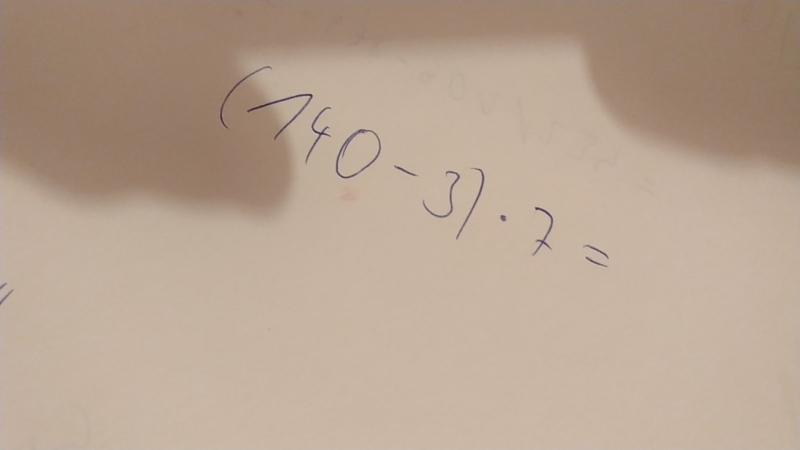 (140 - 3) · 7 =